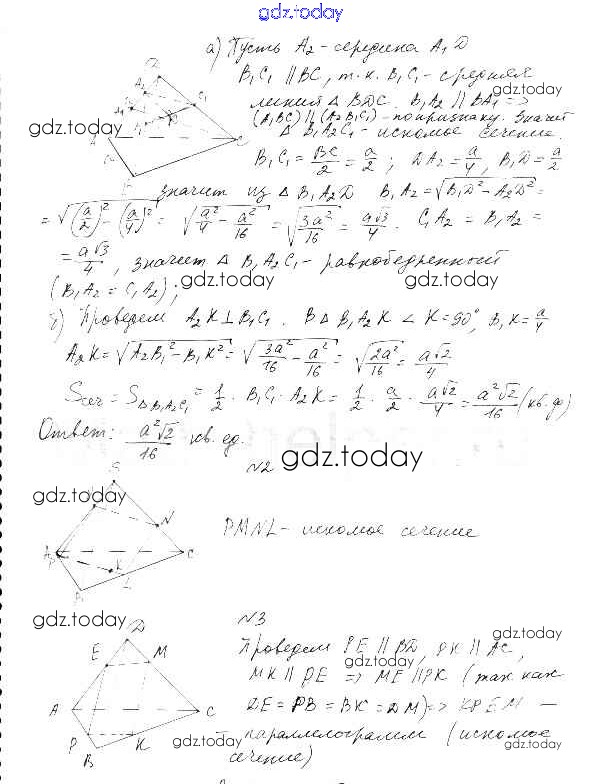 gdz.today
а) Пусть A₂ - середина A₁D
B₁C₁ ∥ BC, т.к. B₁C₁ - средняя
gdz.today
линия △ BDC. B₁A₂ ∥ BA₁ =>
(A₁BC) ∥ (A₂B₁C₁) - по признаку. Значит
gdz.today
△ B₁A₂C₁ - искомое сечение.
B₁C₁ = BC/2 = a/2 ; DA₂ = a/4, B₁D = a/2
значит из △ B₁A₂D B₁A₂ = √(B₁D² - A₂D²) =
= √((a/2)² - (a/4)²) = √(a²/4 - a²/16) = √(3a²/16) = a√3/4. C₁A₂ = B₁A₂ =
= a√3/4, значит △ B₁A₂C₁ - равнобедренный
(B₁A₂ = C₁A₂);
gdz.today gdz.today
Проведем A₂K ⊥ B₁C₁. В △ B₁A₂K ∠K = 90°, B₁K = a/4
A₂K = √(A₂B₁² - B₁K²) = √(3a²/16 - a²/16) = √(2a²/16) = a√2/4
Sсеч = S△B₁A₂C₁ = 1/2 · B₁C₁ · A₂K = 1/2 · a/2 · a√2/4 = a²√2/16 (кв. ед)
Ответ: a²√2/16 кв. ед.
№2
gdz.today
gdz.today
PMNL - искомое сечение
N
K
C
L
gdz.today
gdz.today
№3
D
E M
Проведем PE ∥ BD, PK ∥ AC,
gdz.today
MK ∥ PE => ME ∥ PK (так как
A C
DE = PB = BK = DM) => KPEM -
P K
B
gdz.today
параллелограмм (искомое
gdz.today
сечение)